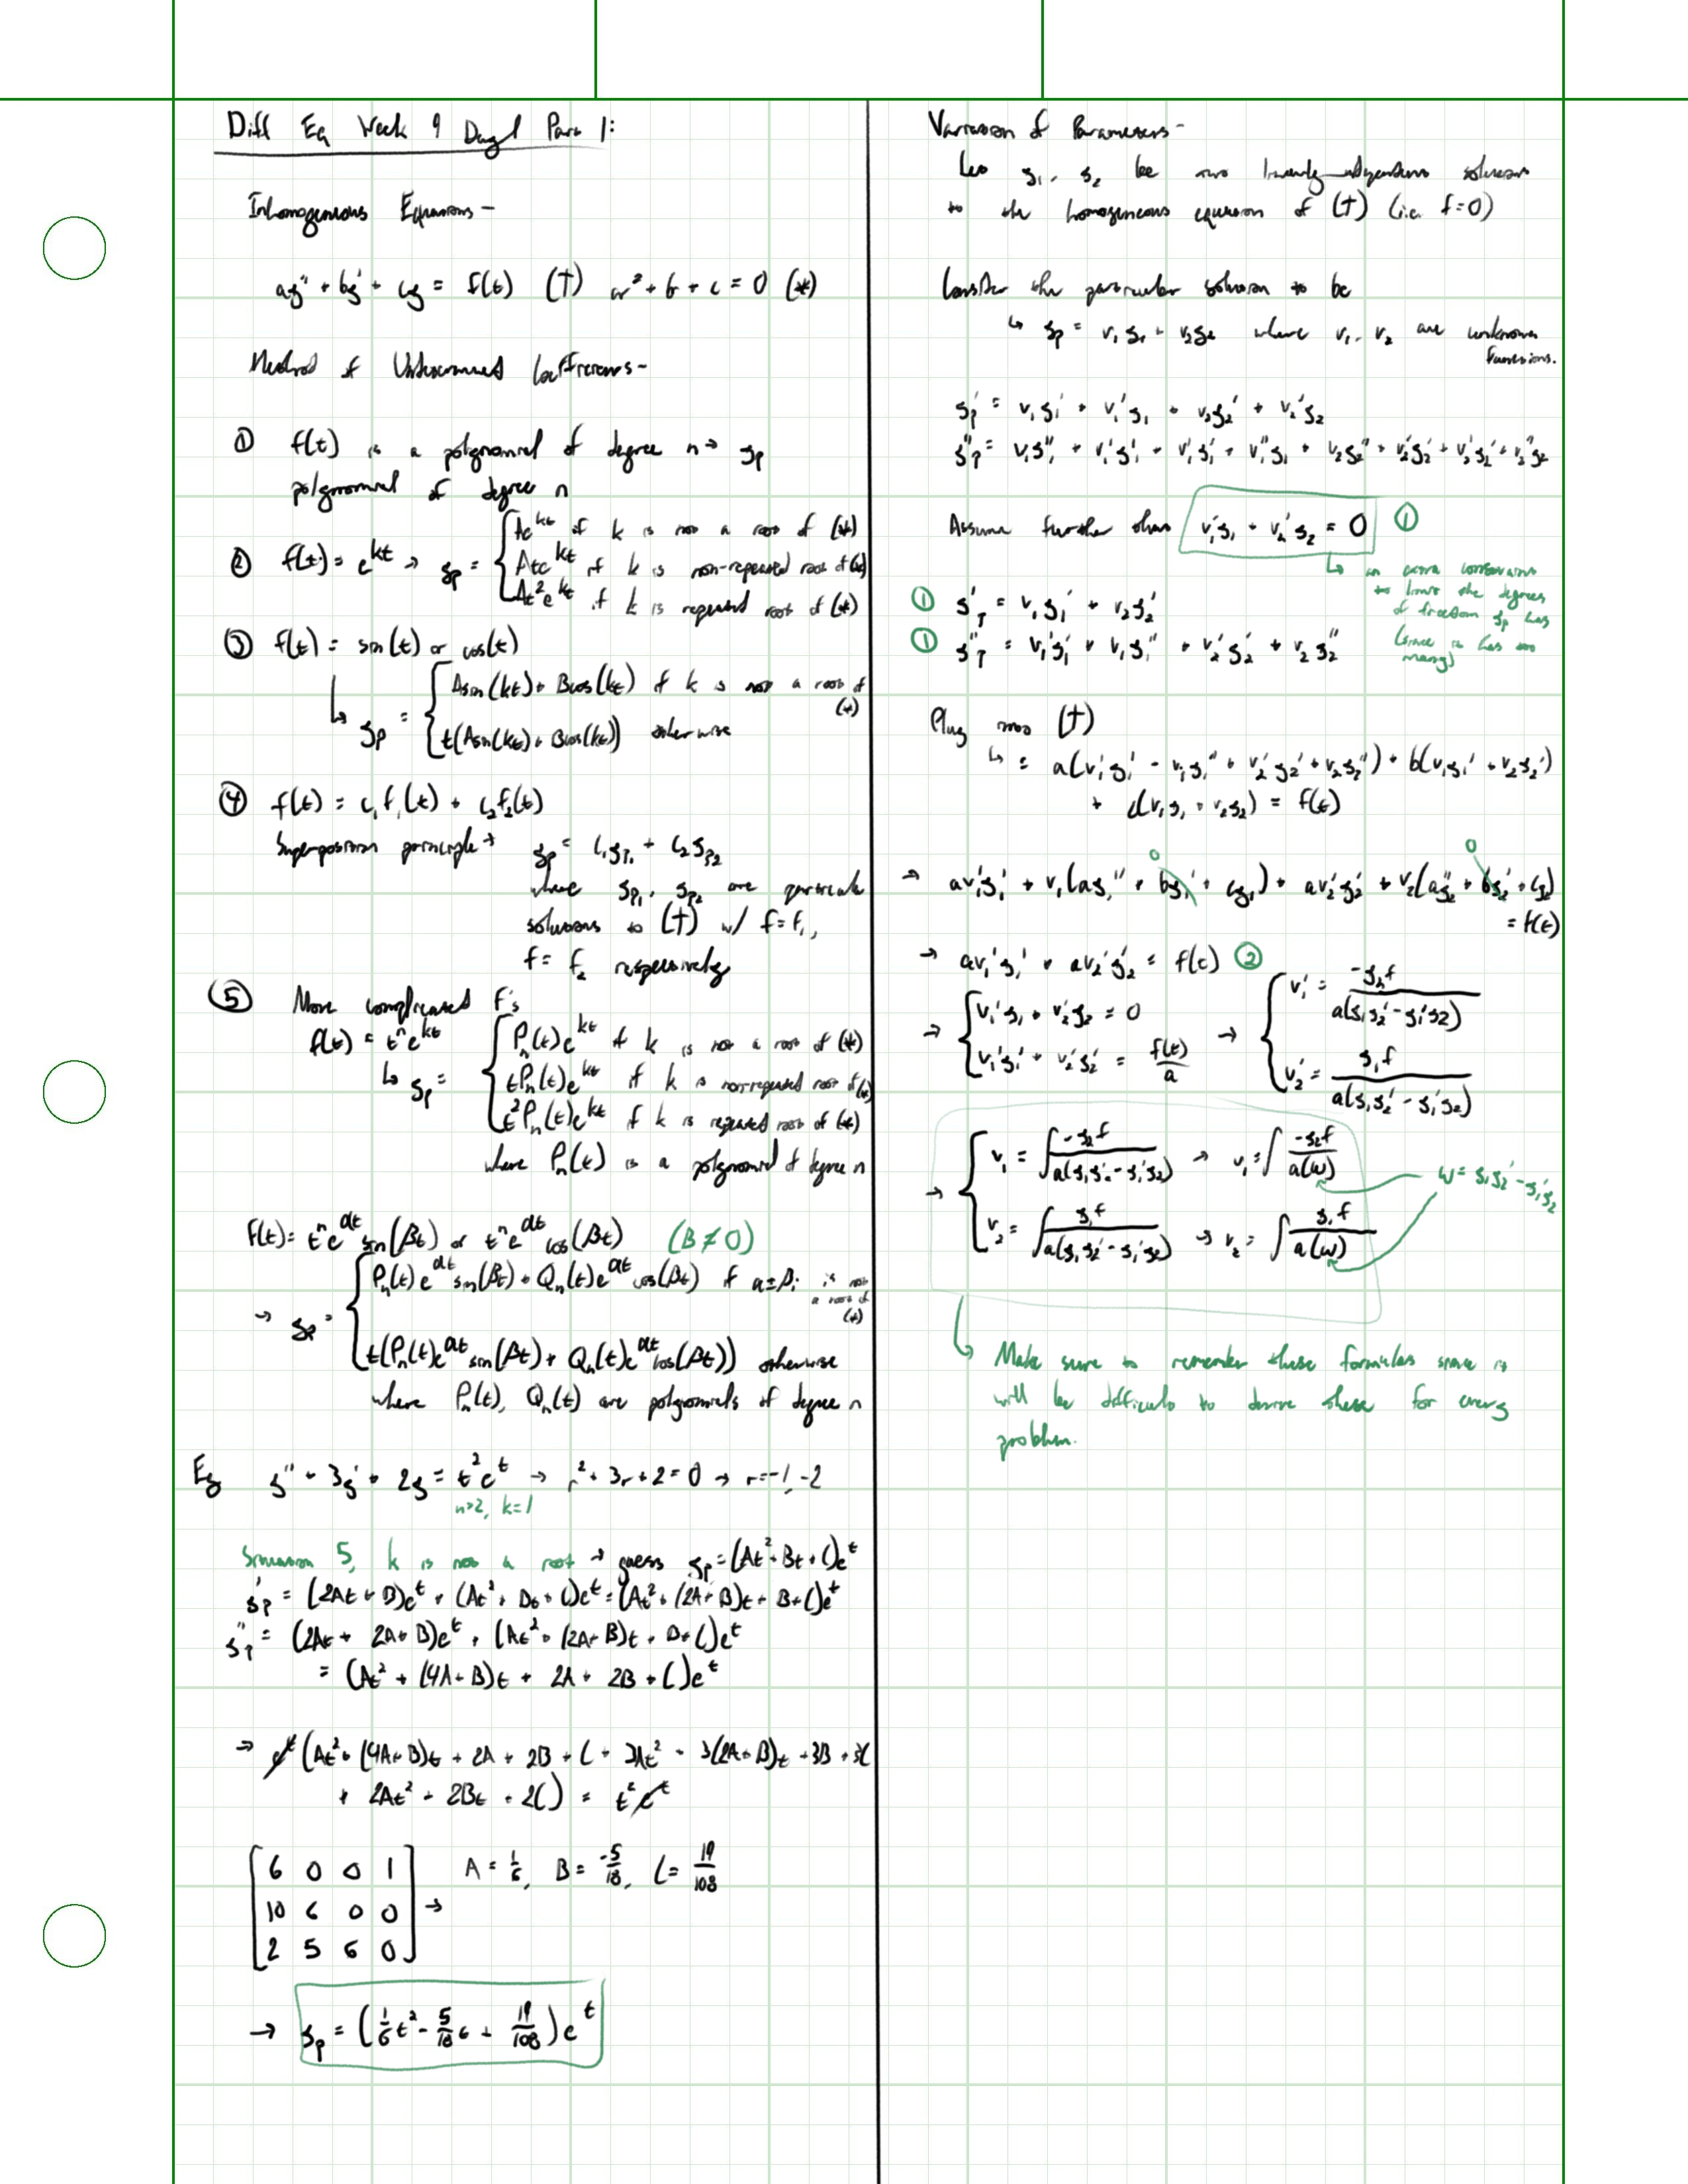 Diff Eq Week 9 Day 1 Part 1:
Inhomogeneous Equations -
ay'' + by' + cy = f(t) (†) ar² + b + c = 0 (*)
Method of Undetermined Coefficients -
① f(t) is a polynomial of degree n → yp
polynomial of degree n
② f(t) = e^kt → yp = { Ae^kt if k is not a root of (*)
Ate^kt if k is non-repeated root of (*)
At²e^kt if k is repeated root of (*)
③ f(t) = sin(t) or cos(t)
↳ yp = { Asin(kt) + Bcos(kt) if k is not a root of (*)
t(Asin(kt) + Bcos(kt)) otherwise
④ f(t) = c₁f₁(t) + c₂f₂(t)
Superposition principle → yp = c₁yp₁ + c₂yp₂
where yp₁, yp₂ are particular
solutions to (†) w/ f = f₁,
f = f₂ respectively
⑤ More complicated f's
f(t) = t^n e^kt
↳ yp = { Pn(t)e^kt if k is not a root of (*)
tPn(t)e^kt if k is non-repeated root of (*)
t²Pn(t)e^kt if k is repeated root of (*)
where Pn(t) is a polynomial of degree n
f(t) = t^n e^αt sin(βt) or t^n e^αt cos(βt) (B ≠ 0)
→ yp = { Pn(t)e^αt sin(βt) + Qn(t)e^αt cos(βt) if α ± βi is not a root of (*)
t(Pn(t)e^αt sin(βt) + Qn(t)e^αt cos(βt)) otherwise
where Pn(t), Qn(t) are polynomials of degree n
Eg y'' + 3y' + 2y = t²e^t → r² + 3r + 2 = 0 → r = -1, -2
n=2, k=1
Situation 5, k is not a root → guess yp = (At² + Bt + C)e^t
yp' = (2At + B)e^t + (At² + Bt + C)e^t = (At² + (2A+B)t + B + C)e^t
yp'' = (2At + 2A + B)e^t + (At² + (2A+B)t + B + C)e^t
= (At² + (4A+B)t + 2A + 2B + C)e^t
→ e^t(At² + (4A+B)t + 2A + 2B + C + 3At² + 3(2A+B)t + 3B + 3C
+ 2At² + 2Bt + 2C) = t²e^t
[6 0 0 1
10 6 0 0
2 5 6 0] → A = 1/6, B = -5/18, C = 19/108
→ yp = (1/6 t² - 5/18 t + 19/108)e^t
Variation of Parameters -
Let y₁, y₂ be two linearly independent solutions
to the homogeneous equation of (†) (i.e. f=0)
Consider the particular solution to be
↳ yp = v₁y₁ + v₂y₂ where v₁, v₂ are unknown
functions.
yp' = v₁y₁' + v₁'y₁ + v₂y₂' + v₂'y₂
yp'' = v₁y₁'' + v₁'y₁' + v₁'y₁' + v₁''y₁ + v₂y₂'' + v₂'y₂' + v₂'y₂' + v₂''y₂
Assume further that v₁'y₁ + v₂'y₂ = 0 ①
↳ an extra constraint
to limit the degrees
of freedom yp has
(since it has too
many)
① yp' = v₁y₁' + v₂y₂'
① yp'' = v₁'y₁' + v₁y₁'' + v₂'y₂' + v₂y₂''
Plug into (†)
↳ = a(v₁'y₁' + v₁y₁'' + v₂'y₂' + v₂y₂'') + b(v₁y₁' + v₂y₂')
+ c(v₁y₁ + v₂y₂) = f(t)
→ av₁'y₁' + v₁(ay₁'' + by₁' + cy₁) + av₂'y₂' + v₂(ay₂'' + by₂' + cy₂) 0 0
= f(t)
→ av₁'y₁' + av₂'y₂' = f(t) ②
→ { v₁'y₁ + v₂'y₂ = 0
v₁'y₁' + v₂'y₂' = f(t)/a → { v₁' = -y₂f / a(y₁y₂' - y₁'y₂)
v₂' = y₁f / a(y₁y₂' - y₁'y₂)
→ { v₁ = ∫ -y₂f / a(y₁y₂' - y₁'y₂) → v₁ = ∫ -y₂f / a(w) w = y₁y₂' - y₁'y₂
v₂ = ∫ y₁f / a(y₁y₂' - y₁'y₂) → v₂ = ∫ y₁f / a(w)
↳ Make sure to remember these formulas since it
will be difficult to derive these for every
problem.